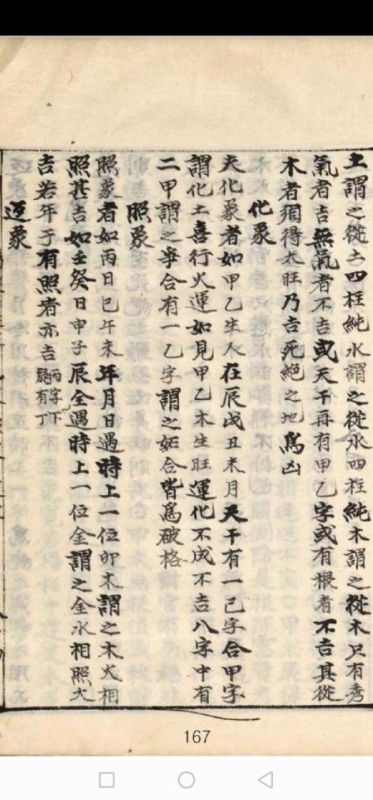 土謂之從土四柱純水謂之從水四柱純木謂之從木只有秀
氣者吉無氣者不吉或天干再有甲乙字或有根者不吉其從
木者須得太旺乃吉死絕之地爲凶
化象
夫化象者如甲乙生人在辰戌丑未月天干有一己字合甲字
謂化土喜行火運如見甲乙木生旺運化不成不吉八字中有
二甲謂之爭合有一乙字謂之妬合皆爲破格
照象
照象者如丙日巳午未年月日遇時上一位卯木謂之木火相
照甚吉如壬癸日申子辰全遇時上一位金謂之金水相照大
吉若年子有照者亦吉
返象
167